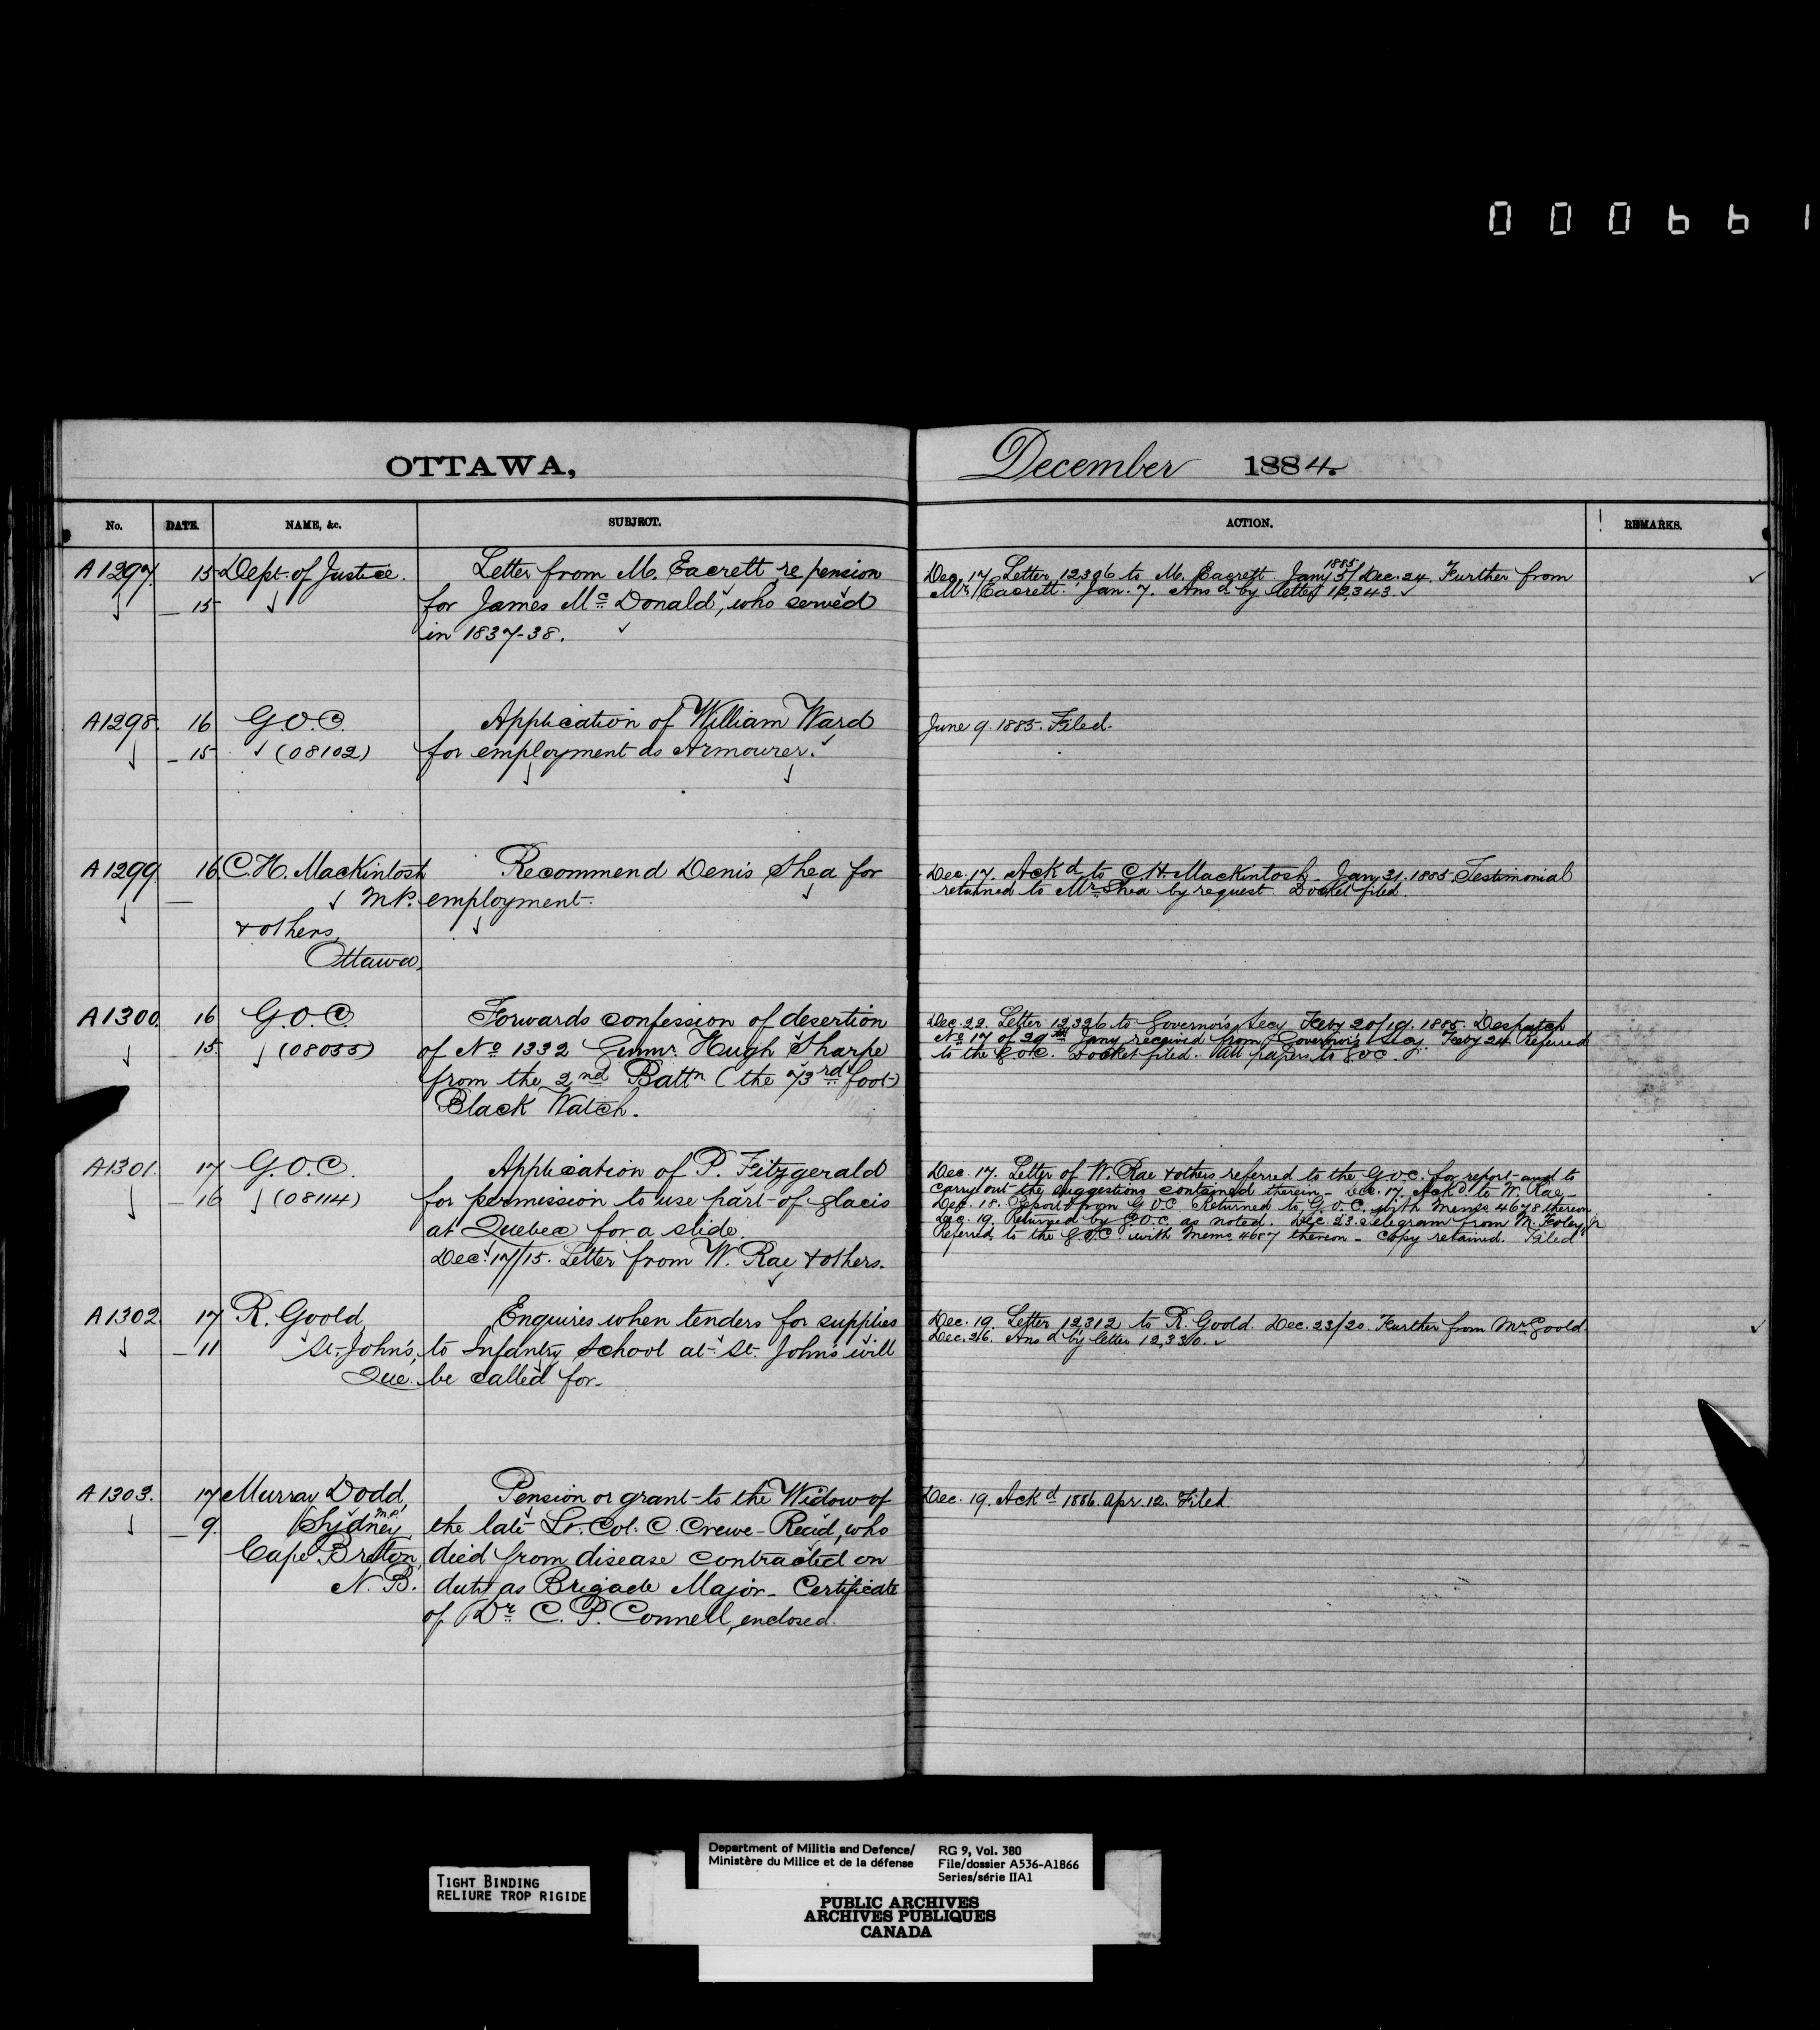 000661
OTTAWA, December 1884.
No. DATE. NAME, &c. SUBJECT. ACTION. REMARKS.
A1297. 15 Dept. of Justice. Letter from M. Eacrett re pension
15 for James Mc Donald, who served
in 1837-38.
1885
Dec. 17. Letter 12,306 to M. Eacrett Jany 5/Dec. 24. Further from
Mr. Eacrett. Jan. 7. Ansd by letter 12,343.
A1298. 16 G.O.C. Application of William Ward
15 (08102) for employment as Armourer.
June 9. 1885. Filed.
A1299. 16 C.H. MacKintosh Recommend Denis Shea for
M.P. employment.
& others,
Ottawa.
Dec. 17. Ackd to C.H. Mackintosh. Jany 31. 1885. Testimonial
returned to Mr. Shea by request. Docket filed.
A1300. 16 G.O.C. Forwards confession of desertion
15. (08055) of No 1332 Gunnr. Hugh Sharpe
from the 2nd Battn (the 73rd foot)
Black Watch.
Dec. 22. Letter 12,326 to Governor's Secy Feby 20/19. 1885. Despatch
No 17 of 29th Jany received from Governor's Secy. Feby 24 Referred
to the G.O.C. Docket filed. All papers to G.O.C.
A1301. 17 G.O.C. Application of P. Fitzgerald
16 (08114) for permission to use part of glacis
at Quebec for a slide.
Dec. 17/15. Letter from W. Rae & others.
Dec. 17. Letter of W. Rae & others referred to the G.O.C. for report and to
carry out the suggestions contained therein. Dec. 17. Ackd. to W. Rae.
Dec. 18. Report from G.O.C. Returned to G.O.C. with Memo 4678 thereon
Dec. 19. Returned by G.O.C. as noted. Dec. 23. Telegram from M. Foley
Referred to the G.O.C. with Memo 4687 thereon. Copy retained. Filed
A1302. 17 R. Goold, Enquires when tenders for supplies
11 St. John's, to Infantry School at St. John's will
Que. be called for.
Dec. 19. Letter 12,312 to R. Goold. Dec. 23/20. Further from Mr Goold.
Dec. 26. Ansd by letter 12,330.
A1303. 17 Murray Dodd, Pension or grant to the Widow of
M.P.
9. Sydney the late Lt. Col. C. Crewe-Read, who
Cape Breton, died from disease contracted on
N.B. duty as Brigade Major. Certificate
of Dr. C. P. Connell, enclosed.
Dec. 19. Ackd 1886. Apr. 12. Filed.
TIGHT BINDING
RELIURE TROP RIGIDE
Department of Militia and Defence/
Ministère du Milice et de la défense
RG 9, Vol. 380
File/dossier A536-A1866
Series/série IIA1
PUBLIC ARCHIVES
ARCHIVES PUBLIQUES
CANADA